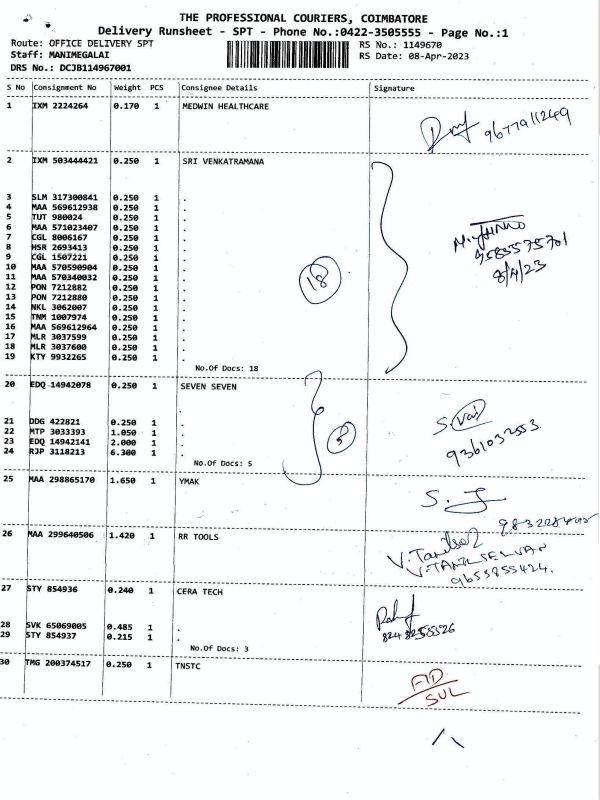 THE PROFESSIONAL COURIERS, COIMBATORE
Delivery Runsheet - SPT - Phone No.:0422-3505555 - Page No.:1
Route: OFFICE DELIVERY SPT RS No.: 1149670
Staff: MANIMEGALAI RS Date: 08-Apr-2023
DRS No.: DCJB114967001
S No Consignment No Weight PCS Consignee Details Signature
1 IXM 2224264 0.170 1 MEDWIN HEALTHCARE
9677911249
2 IXM 503444421 0.250 1 SRI VENKATRAMANA
3 SLM 317300841 0.250 1 .
4 MAA 569612938 0.250 1 .
5 TUT 980024 0.250 1 .
6 MAA 571023407 0.250 1 .
7 CGL 8006167 0.250 1 .
8 HSR 2693413 0.250 1 .
9 CGL 1507221 0.250 1 .
10 MAA 570590904 0.250 1 .
11 MAA 570340032 0.250 1 .
12 PON 7212882 0.250 1 .
13 PON 7212880 0.250 1 .
14 NKL 3062007 0.250 1 .
15 TNM 1007974 0.250 1 .
16 MAA 569612964 0.250 1 .
17 MLR 3037599 0.250 1 .
18 MLR 3037600 0.250 1 .
19 KTY 9932265 0.250 1 .
No.Of Docs: 18
18
9585575701
8/4/23
20 EDQ 14942078 0.250 1 SEVEN SEVEN
21 DDG 422821 0.250 1 .
22 MTP 3033393 1.050 1 .
23 EDQ 14942141 2.000 1 .
24 RJP 3118213 6.300 1 .
No.Of Docs: 5
5
9361032553
25 MAA 298865170 1.650 1 YMAK
26 MAA 299640506 1.420 1 RR TOOLS
V.TAMILSELVAN
9655855424.
27 STY 854936 0.240 1 CERA TECH
28 SVK 65069005 0.485 1 .
29 STY 854937 0.215 1 .
No.Of Docs: 3
30 TMG 200374517 0.250 1 TNSTC
SUL